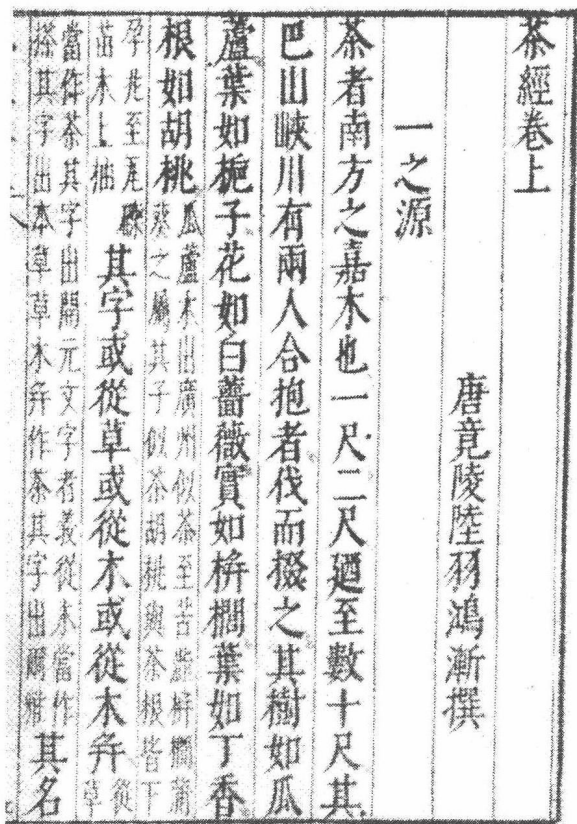 茶經卷上
唐竟陵陸羽鴻漸撰
一之源
茶者南方之嘉木也一尺二尺廼至數十尺其
巴山峽川有兩人合抱者伐而掇之其樹如瓜
蘆葉如梔子花如白薔薇實如栟櫚葉如丁香
根如胡桃瓜蘆木出廣州似茶至苦澁栟櫚蒲葵之屬其子似茶胡桃與茶根皆下
孕兆至瓦礫苗木上抽其字或從草或從木或從木并從草
當作茶其字出開元文字者義從木當作搽其字出本草草木并作荼其字出爾雅其名